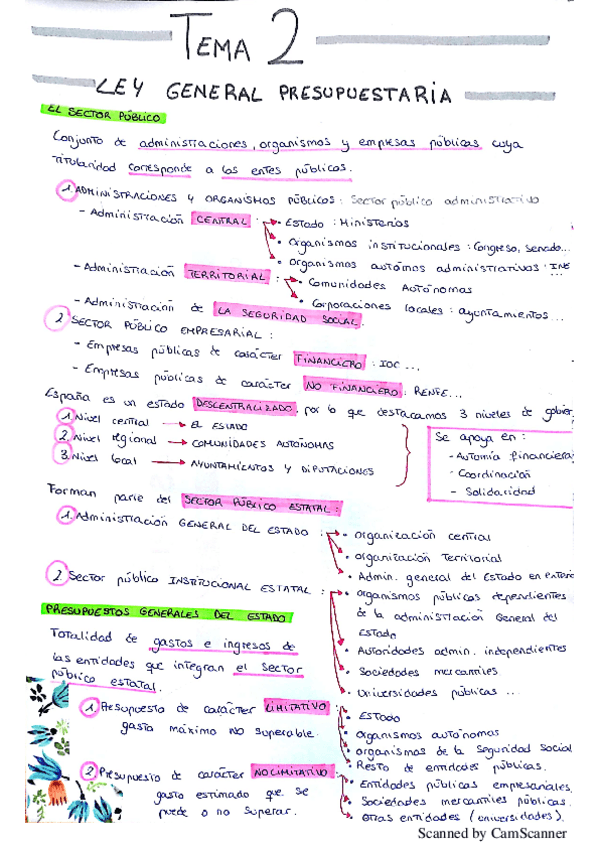 TEMA 2
LEY GENERAL PRESUPUESTARIA
EL SECTOR PÚBLICO
Conjunto de administraciones, organismos y empresas públicas cuya
titularidad corresponde a los entes públicos.
1. ADMINISTRACIONES Y ORGANISMOS PÚBLICOS: Sector público administrativo
- Administración CENTRAL: • Estado: Ministerios
• Organismos institucionales: Congreso, Senado...
• Organismos autómos administrativos: INE
...
- Administración TERRITORIAL: • Comunidades Autónomas
• Corporaciones locales: ayuntamientos...
- Administración de LA SEGURIDAD SOCIAL.
2 SECTOR PÚBLICO EMPRESARIAL:
- Empresas públicas de carácter FINANCIERO: ICO...
- Empresas públicas de carácter NO FINANCIERO: RENFE...
España es un estado DESCENTRALIZADO, por lo que destacamos 3 niveles de gobier
1. Nivel central → EL ESTADO
2. Nivel regional → COMUNIDADES AUTÓNOMAS
3. Nivel local → AYUNTAMIENTOS Y DIPUTACIONES
Se apoya en:
- Automía financiera
- Coordinación
- Solidaridad
Forman parte del SECTOR PÚBLICO ESTATAL:
1. Administración GENERAL DEL ESTADO: • Organización central
• Organización Territorial
• Admin. general del Estado en
2. Sector público INSTITUCIONAL ESTATAL: • Organismos públicas dependientes
de la administración General del
Estado
• Autoridades admin. independientes
• Sociedades mercantiles
• Universidades públicas...
PRESUPUESTOS GENERALES DEL ESTADO
Totalidad de gastos e ingresos de
las entidades que integran el sector
público estatal.
1. Presupuesto de carácter LIMITATIVO:
gasto máximo NO superable.
• ESTADO
• Organismos autónomas
• Organismos de la Seguridad Social
• Resto de entidades públicas.
2. Presupuesto de carácter NO LIMITATIVO:
gasto estimado que se
puede o no superar.
• Entidades públicas empresariales
• Sociedades mercantiles públicas.
• Otras entidades (universidades).
Scanned by CamScanner